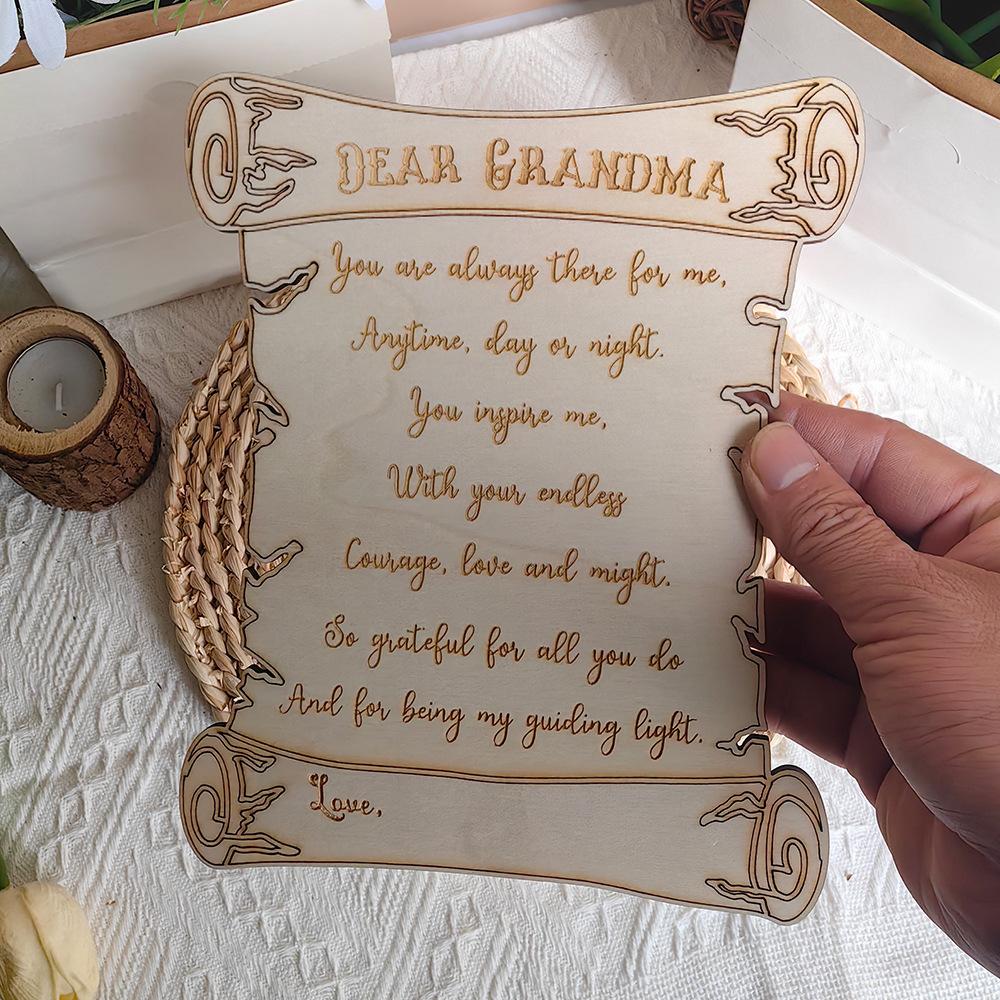 DEAR GRANDMA
You are always there for me,
Anytime, day or night.
You inspire me,
With your endless
Courage, love and might.
So grateful for all you do
And for being my guiding light.
Love,